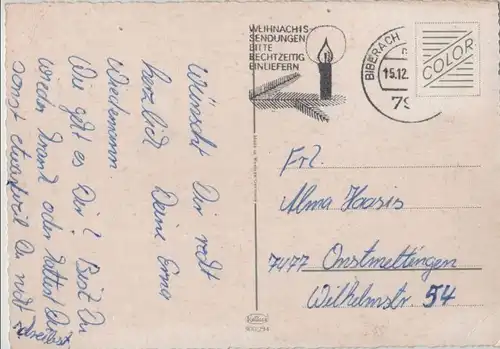 Wünscht Dir recht
herzlich Deine Erna
Wiedemann.
Wie geht es Dir? Bist Du
wieder krank oder hattest Du
sonst etwas weil Du nicht schreibst
WEIHNACHTS-
SENDUNGEN
BITTE
RECHTZEITIG
EINLIEFERN
BIBERACH
15.12.
79
COLOR
Frl.
Alma Haasis
7477 Onstmettingen
Wilhelmstr. 54